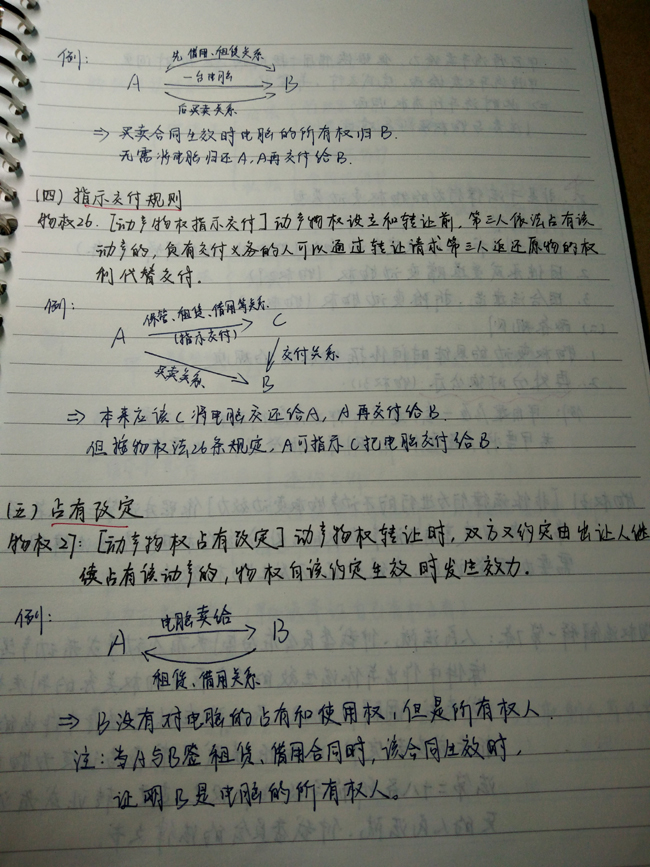 例：
先借用、租赁关系
A 一台电脑 B
后买卖关系
⇒ 买卖合同生效时电脑的所有权归B.
无需将电脑归还A, A再交付给B.
(四) 指示交付规则
物权26. [动产物权指示交付] 动产物权设立和转让前, 第三人依法占有该
动产的, 负有交付义务的人可以通过转让请求第三人返还原物的权
利代替交付.
例：
保管、租赁、借用等关系
A (指示交付) C
买卖关系 交付关系
B
⇒ 本来应该C将电脑交还给A, A再交付给B.
但按物权法26条规定, A可指示C把电脑交付给B.
(五) 占有改定
物权27: [动产物权占有改定] 动产物权转让时, 双方又约定由出让人继
续占有该动产的, 物权自该约定生效时发生效力.
例：
电脑卖给
A B
租赁、借用关系
⇒ B没有对电脑的占有和使用权, 但是所有权人.
注：当A与B签租赁、借用合同时, 该合同生效时,
证明B是电脑的所有权人。